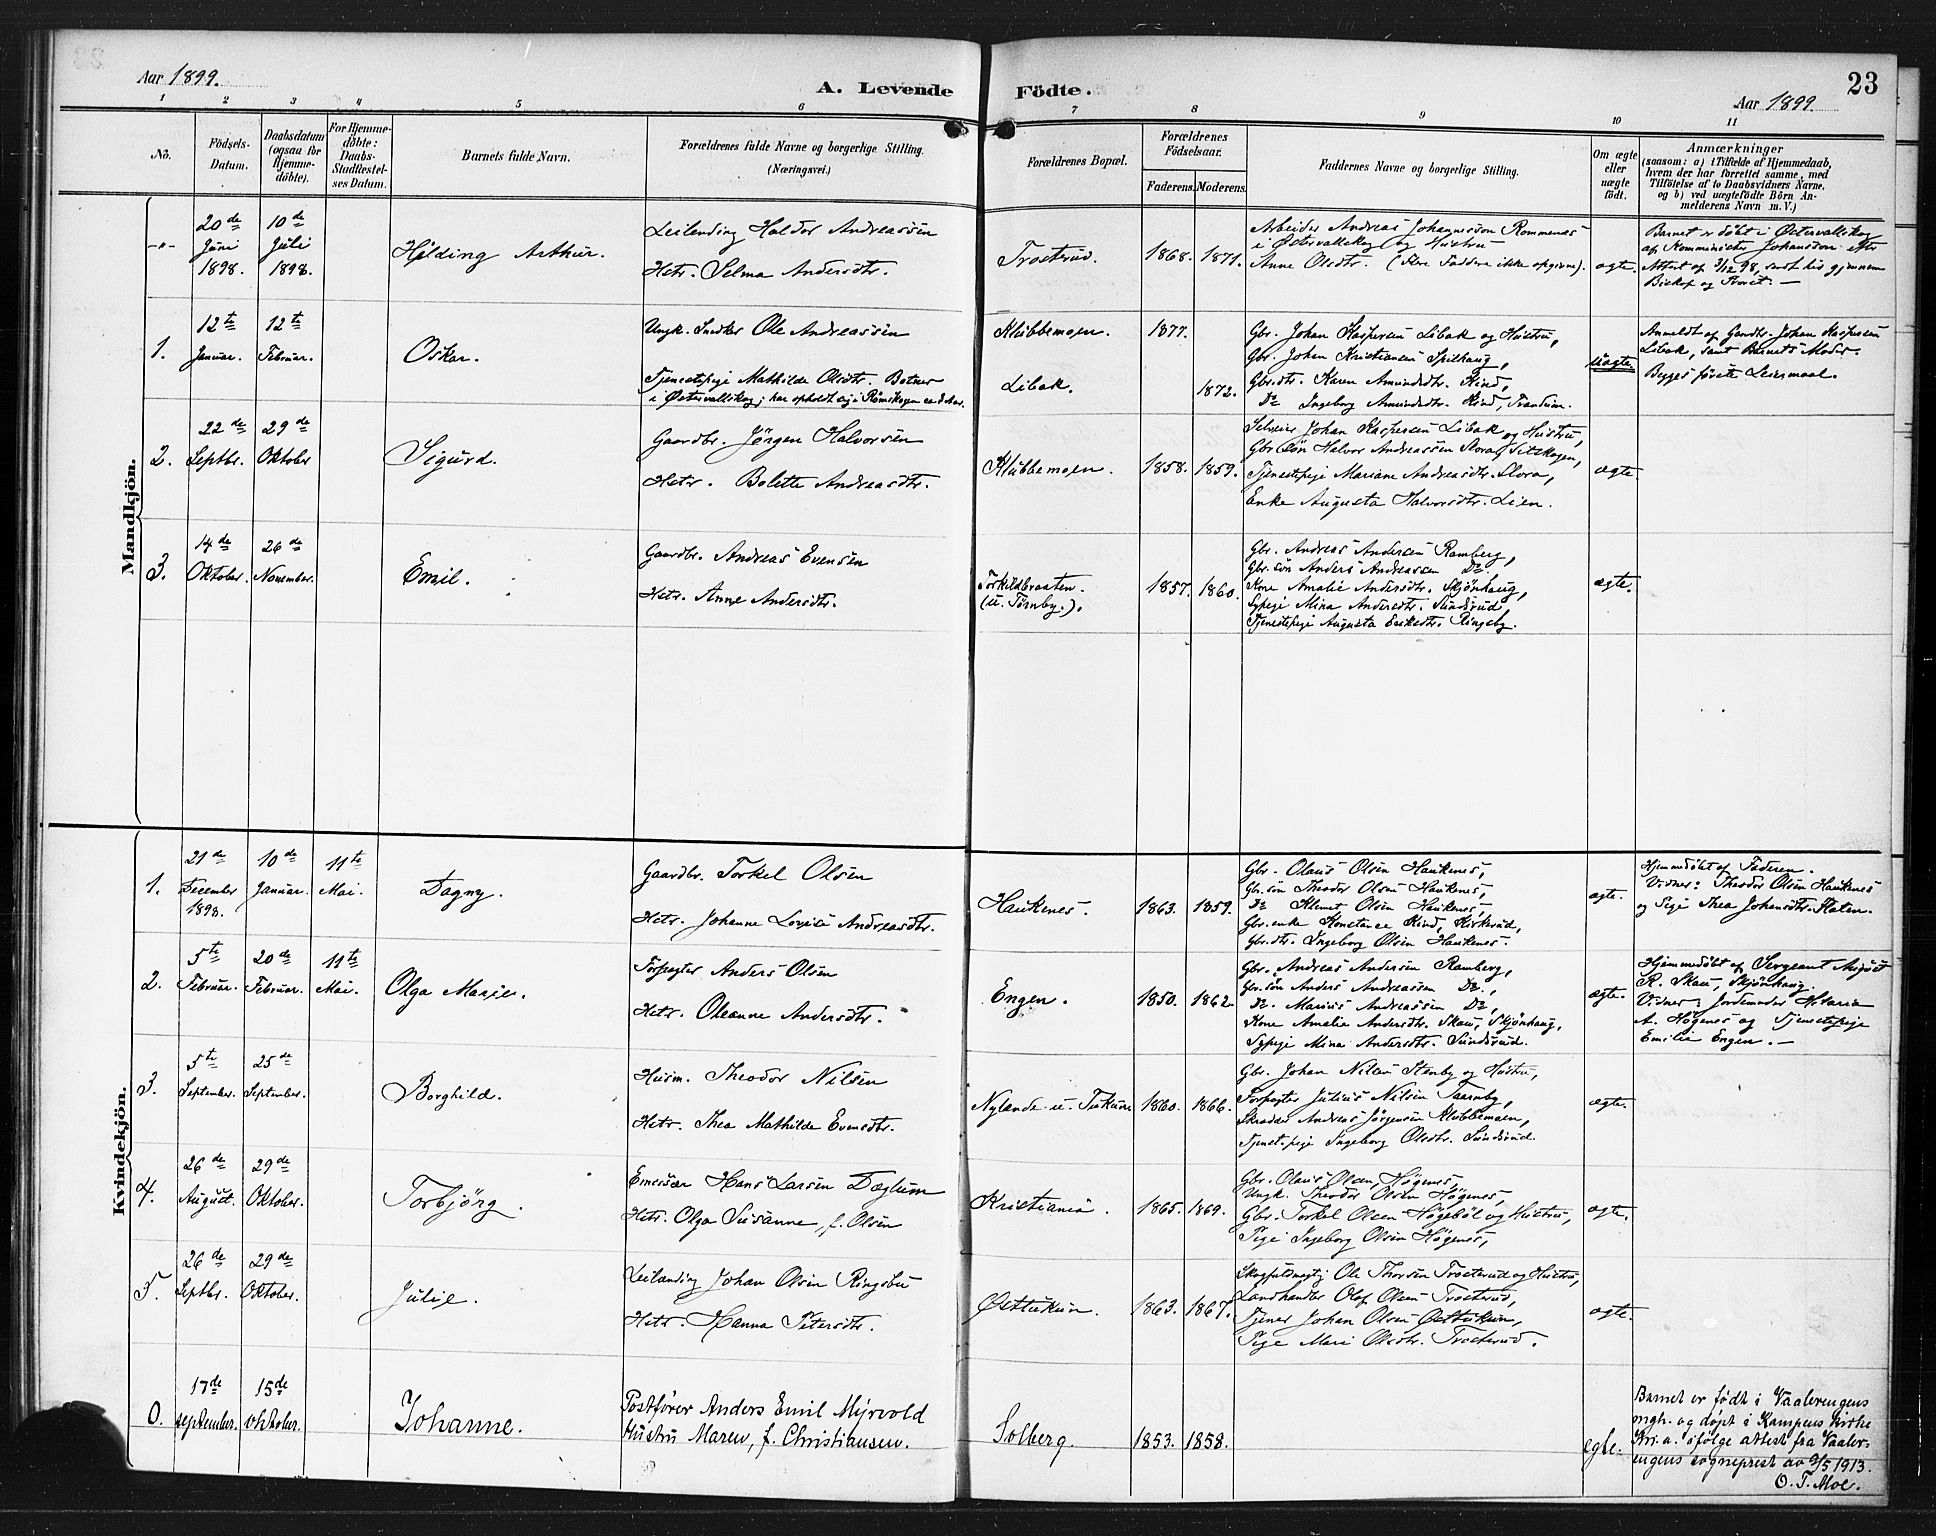 Aar 1899.
A. Levende Födte.
23
Aar 1899.
1 2 3 4 5 6 7 8 9 10 11
No.
Födsels-
Datum.
Daabsdatum
(ogsaa for
Hjemme-
döbte).
For Hjemme-
döbte:
Daabs-
Stadfæstel-
ses Datum.
Barnets fulde Navn.
Forældrenes fulde Navne og borgerlige Stilling.
(Næringsvei.)
Forældrenes Bopæl.
Forældrenes
Födselsaar.
Faderens. Moderens.
Faddernes Navne og borgerlige Stilling.
Om ægte
eller
uægte
födt.
Anmærkninger
(saasom: a) i Tilfælde af Hjemmedaab,
hvem der har forrettet samme, med
Tilföielse af to Daabsvidners Navne,
og b) ved uægtefödte Börn An-
melderens Navn m. V.)
Mandkjön.
-"-
20de
Juni
1898.
10de
Juli
1898.
Hilding Arthur.
Leilending Haldor Andreassen
Hstr. Selma Andersdtr.
Trosterud.
1868. 1871.
Arbeider Andreas Johannesson Rommenæs
i Östervallskog og Hustru
Anne Olsdtr. (Flere Faddere ikke opgivne).
ægte.
Barnet er döbt i Östervallskog
af Komminister Johansson efter
Attest af 3/12 98, sendt hid gjennem
Biskop og Provst. —
1.
12te
Januar.
12te
Februar.
Oskar.
Ungk. Snedker Ole Andreassen
Tjenestepige Mathilde Olsdtr. Botner
i Östervallskog; har opholdt sig i Römskogen ca 2 Aar.
Klubbemoen.
Libak.
1877.
1872.
Gbr. Johan Kaspersen Libak og Hustru,
Gbr. Johan Kristiansen Spilhaug,
Gbr.dtr. Karen Amundsdtr. Kind,
Do Ingeborg Amundsdtr. Kind, Trandem.
uægte.
Anmeldt af Gaardbr. Johan Kaspersen
Libak, samt Barnets Moder.
Begges förste Leiermaal.
2.
22de
Septbr.
29de
Oktober
Sigurd.
Gaardbr. Jørgen Halvorsen
Hstr. Bolette Andreasdtr.
Klubbemoen.
1858. 1859.
Johan Kaspersen Libak og Hustru,
Gbr Søn Halvor Andreassen Flora, Setskogen,
Tjenestepige Mariane Andreasdtr. Flora,
Enke Augusta Halvorsdtr. Lien.
ægte.
3.
14de
Oktober.
26de
November.
Emil.
Gaardbr. Andreas Evensen
Hstr. Anne Andersdtr.
Torkildbraaten.
(u. Tørnby.).
1857. 1860.
Gbr. Andreas Andersen Ramberg,
Gbr.søn Anders Andreassen Do.
Kone Amalie Andersdtr. Skjønhaug,
Sypige Mina Andersdtr. Sundsrud,
Tjenestepige Augusta Eriksdtr. Ringsby.
ægte.
Kvindekjön.
1.
21de
December
1898.
10de
Januar.
11te
Mai.
Dagny.
Gaardbr. Torkel Olsen
Hstr. Johanne Lovise Andreasdtr.
Haukenes.
1863. 1859.
Gbr. Olaus Olsen Haukenes,
Gbr.søn Theodor Olsen Haukenes,
Do Klemet Olsen Haukenes,
Gbr.enke Konstance Kind, Kirkerud,
Gbr.dtr. Ingeborg Olsen Haukenes.
ægte.
Hjemmedöbt af Faderen.
Vidner: Theodor Olsen Haukenes
og Pige Thea Johansdtr. Flaten.
2.
5te
Februar.
20de
Februar.
11te
Mai.
Olga Marie.
Forpagter Anders Olsen
Hstr. Oleanne Andersdtr.
Engen.
1850. 1862.
Gbr. Andreas Andersen Ramberg,
Gbr.søn Anders Andreassen Do.,
Do. Marius Andreassen Do,
Kone Amalie Andersdtr. Skau, Skjønhaug,
Sypige Mina Andersdtr. Sundsrud.
ægte.
Hjemmedöbt af Sergeant August
R. Skau, Skjønhaug.
Vidner: Jordmoder Maria
A. Høgenes og Tjenestepige
Emilie Engen. —
3.
5te
September.
25de
September.
Borghild.
Husm. Theodor Nilsen
Hstr. Thea Mathilde Evensdtr.
Nylende u. Tukune
1860. 1866.
Gbr. Johan Nilsen Stenby og Hustru,
Forpagter Julius Nilsen Taarnby,
Skrædder Andreas Jørgensen Klubbemoen,
Tjenestepige Ingeborg Olsdtr. Sundsrud.
ægte.
4.
26de
August.
29de
Oktober.
Torbjörg.
Hans Larsen Døglum
Hstr. Olga Susanne, f. Olsen
Kristiania.
1865. 1869.
Gbr. Olaus Olsen, Høgenes,
Ungk. Theodor Olsen Høgenes,
Gbr. Torkel Olsen Høgebøl og Hustru,
Pige Ingeborg Olsen Høgenes,
ægte.
5.
26de
Septbr.
29de
Oktober.
Julie.
Leilending Johan Olsen Ringsbu
Hstr. Hanna Petersdtr.
Østtukun.
1863. 1867.
Skogfuldmægtig Ole Thorsen Trosterud og Hustru,
Landhandler Olaf Olsen Trosterud,
Tjener Johan Olsen Østtukun,
Pige Mari Olsdtr. Trosterud.
ægte.
0.
17de
september.
15de
oktober.
Johanne.
Postfører Anders Emil Myrvold
Hustru Maren, f. Christiansen.
Solberg.
1853. 1858.
egte.
Barnet er født i Vaalerengens
mgh. og døpt i Kampens kirke
Kr.a. ifølge attest fra Vaaler-
engens sogneprest av 9/5 1913.
O. T. Moe.